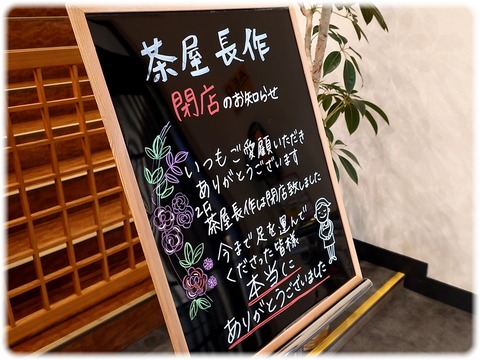 茶屋長作
閉店のお知らせ
いつもご愛顧いただき
ありがとうございます
茶屋長作は閉店致しました
今まで足を運んで
くださった皆様
本当に
ありがとうございました